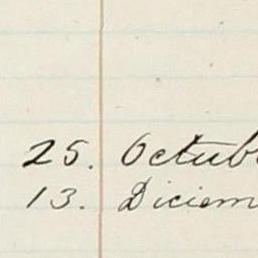 25. Octub
13. Diciem